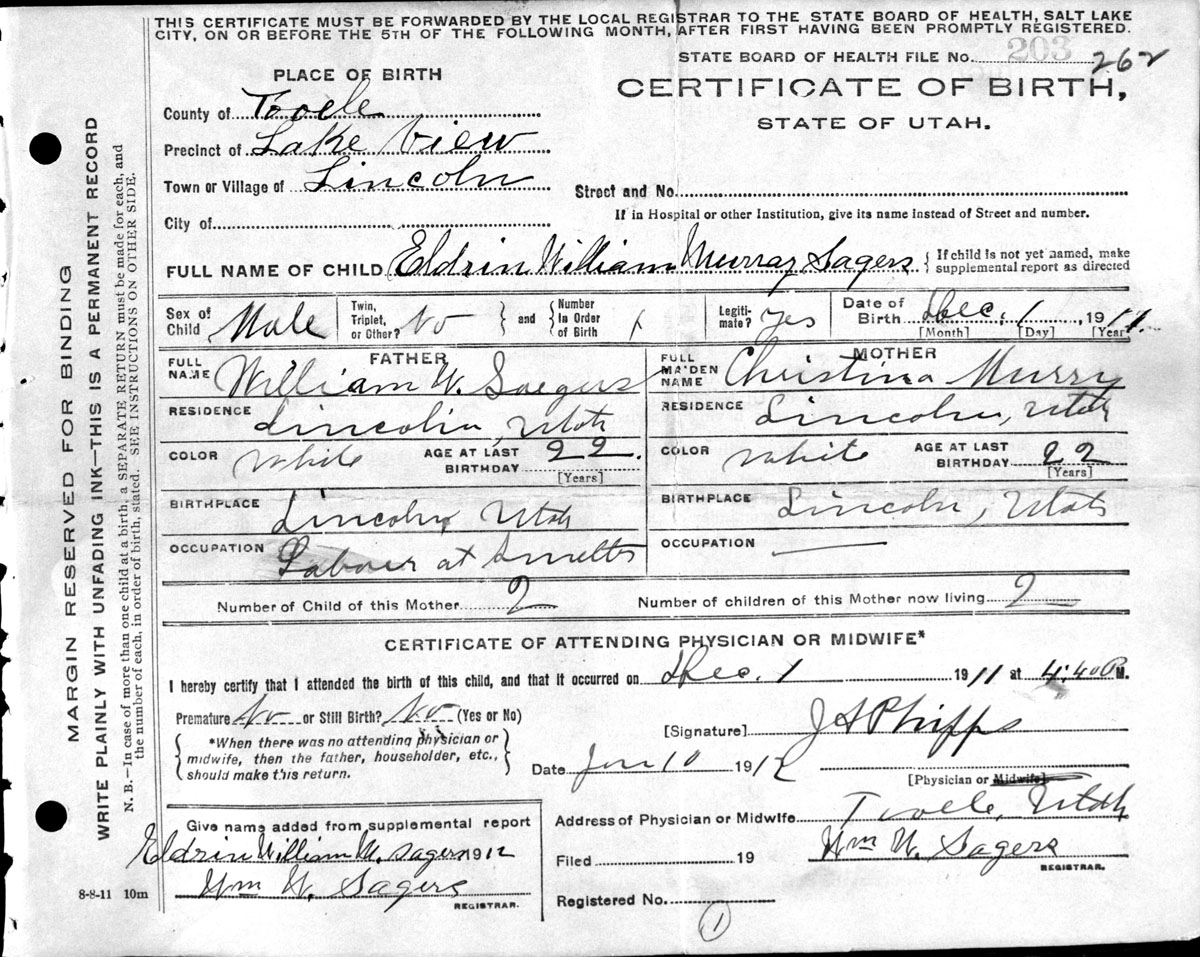 THIS CERTIFICATE MUST BE FORWARDED BY THE LOCAL REGISTRAR TO THE STATE BOARD OF HEALTH, SALT LAKE
CITY, ON OR BEFORE THE 5TH OF THE FOLLOWING MONTH, AFTER FIRST HAVING BEEN PROMPTLY REGISTERED.
STATE BOARD OF HEALTH FILE No. 203 262
PLACE OF BIRTH
CERTIFICATE OF BIRTH,
STATE OF UTAH.
County of Tooele
Precinct of Lake View
Town or Village of Lincoln
Street and No.
City of
If in Hospital or other Institution, give its name instead of Street and number.
FULL NAME OF CHILD Eldrin William Murray Sagers { If child is not yet named, make
supplemental report as directed
Sex of Child Male
Twin, Triplet, or Other? No } and { Number In Order of Birth 1
Legiti-mate? Yes
Date of Birth Dec. 1 1911
[Month] [Day] [Year]
FATHER
FULL NAME William W. Saegers
MOTHER
FULL MAIDEN NAME Christina Murry
RESIDENCE Lincoln, Utah
RESIDENCE Lincoln, Utah
COLOR White AGE AT LAST BIRTHDAY 22. [Years]
COLOR White AGE AT LAST BIRTHDAY 22 [Years]
BIRTHPLACE Lincoln, Utah
BIRTHPLACE Lincoln, Utah
OCCUPATION Labour at
OCCUPATION
Number of Child of this Mother 2 Number of children of this Mother now living 2
CERTIFICATE OF ATTENDING PHYSICIAN OR MIDWIFE*
I hereby certify that I attended the birth of this child, and that it occurred on Dec. 1 1911 at 4:40 P M.
Premature No or Still Birth? No (Yes or No)
{ *When there was no attending physician or
midwife, then the father, householder, etc.,
should make this return. }
[Signature] J A Phipps
Date Jan 10 1912
[Physician or Midwife]
Address of Physician or Midwife Tooele, Utah
Give name added from supplemental report
Eldrin William M. Sagers 1912
Wm W. Sagers
REGISTRAR.
Filed 19 Wm W. Sagers
REGISTRAR.
Registered No. 1
8-8-11 10m
MARGIN RESERVED FOR BINDING
WRITE PLAINLY WITH UNFADING INK—THIS IS A PERMANENT RECORD
N. B.—In case of more than one child at a birth, a SEPARATE RETURN must be made for each, and
the number of each, in order of birth, stated. SEE INSTRUCTIONS ON OTHER SIDE.